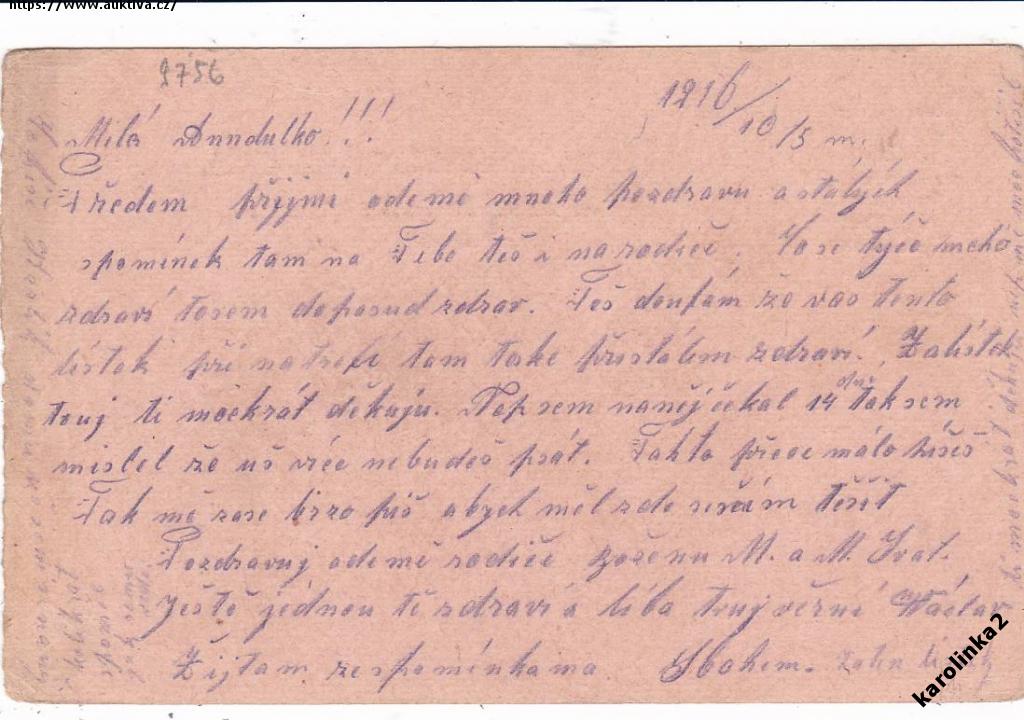 https://www.auktiva.cz/
9756
1916/10/5 m.
Milá Anndulko!!!
Předem přijmi odemě mnoho pozdravu a stálých
spomínek tam na Tebe též i na rodiče. Co se týče mého
zdraví tosem doposud zdrav. Též doufám že vás tento
lístek při natrefí tam také při stálém zdraví. Za lístek
tvuj ti mockrát děkuju. Nap sem naněj čekal 14 dní tak sem
mislel že uš více nebudeš psát. Takto přece málo píšeš
Tak mě zase brzo piš abych měl zde se s čím těšit
Pozdravuj odemě rodiče M. a M. Svat.
Ještě jednou tě zdraví a líbá tvuj věrní Václav
Žij tam ze spomínkama Sbohem.
ti mockrát děkuju
karolinka2